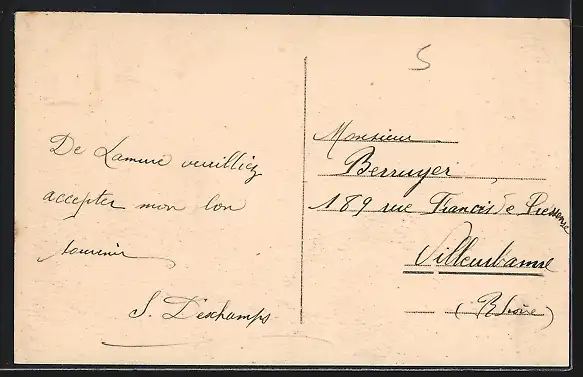 5
De Lamure veuilliez
accepter mon bon
souvenir
S. Deschamps
Monsieur
Berruyer
189 rue Francis de Pressensé
Villeurbanne
(Rhône)